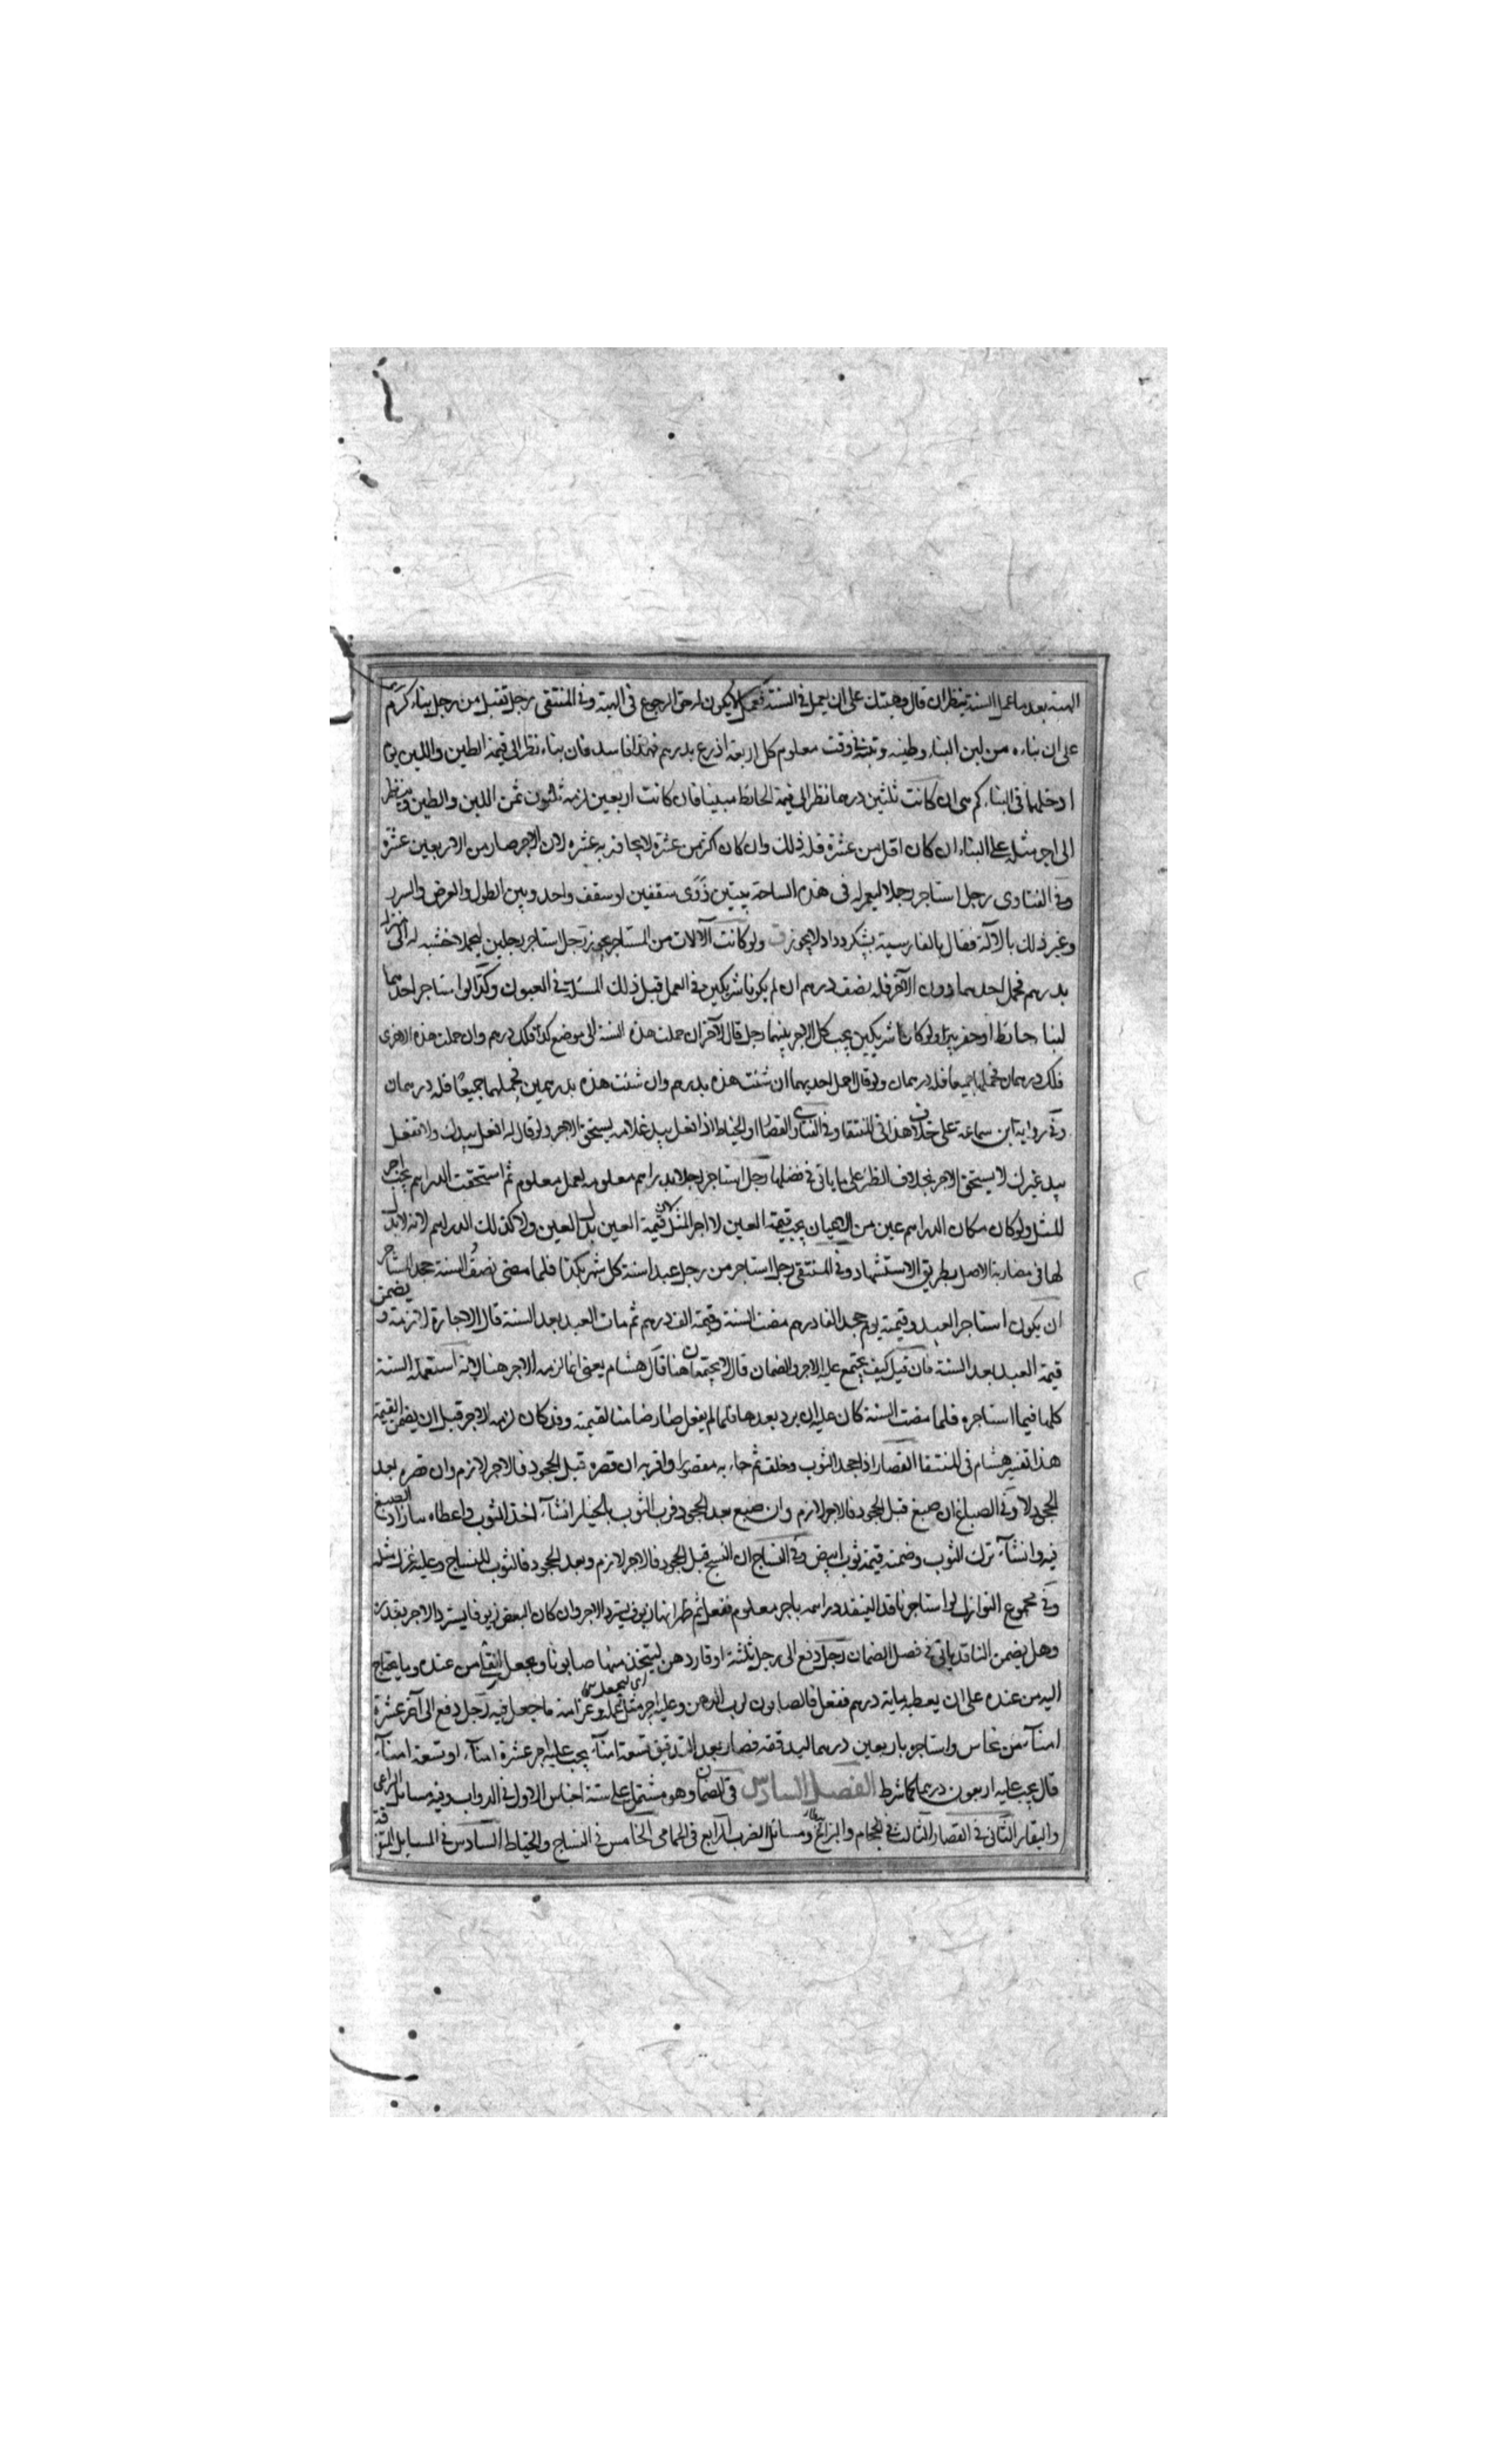 الهبة بعد ما عمل السنة ينظر ان قال وهبتك على ان يعمل في السنة فعمل لا يكون له حق الرجوع في الهبة وفي المنتقى رجل تقبل من رجل بناء كرم
على ان بناءه من لبن البناء وطينه وفي وقت معلوم كل اربعة اذرع بدرهم فهذا فاسد فان بناه نظر الى قيمة الطين واللبن يوم
ادخلهما في البناء كم هي ان كانت ثلثين درهما نظر الى قيمة الحائط مبنيا فان كانت اربعين لزمه ثلثون ثمن اللبن والطين وينظر
الى اجر مثله على البناء ان كان اقل من عشرة فله ذلك وان كان اكثر من عشرة لا يجاوز به عشرة لان الاجر صار من الاربعين عشرة
وفي الفتاوى رجل استاجر رجلا ليعمر له في هذه الساحة بيتين ذوى سقفين او سقف واحد وبين الطول والعرض
وغير ذلك بالآلة فقال بالفارسية لا يجوز ولو كانت الآلات من المستاجر يجوز رجل استاجر رجلين ليحملا خشبه له الى منزله
بدرهم فحمل احدهما دون الآخر فله نصف درهم ان لم يكونا شريكين في العمل قبل ذلك المسئلة في العيون وكذا لو استاجر احدهما
لبنا حائط او حفر بئر ولو كانا شريكين يجب كل الاجر بينهما رجل قال لآخر ان حملت هذه الخشبة الى موضع كذا فلك درهم وان حملت هذه الاخرى
فلك درهمان فحملهما جميعا فله درهمان ولو قال احمل احديهما ان شئت هذه بدرهم وان شئت هذه بدرهمين فحملهما جميعا فله درهمان
وفي رواية ابن سماعة على خلاف هذا في المنتقا وفي الفتاوى القصار او الخياط اذا فعل بيد غلامه يستحق الاجر ولو قال له افعل بيدك ولا تفعل
بيد غيرك لا يستحق الاجر بخلاف الظئر على ما ياتي في فصلها رجل استاجر رجلا بدراهم معلومة لعمل معلوم ثم استحقت الدراهم يجب اجر
المثل ولو كان مكان الدراهم عين من الاعيان يجب قيمة العين لا اجر المثل لان قيمة العين بدل العين ولا كذلك الدراهم لانه لا بدل
لها في مضاربة الاصل بطريق الاستشهاد وفي المنتقى رجل استاجر من رجل عبدا سنة كل شهر بكذا فلما مضى نصف السنة جحد المستاجر
ان يكون استاجر العبد وقيمته يوم جحد الفا درهم فمضت السنة وقيمته الف درهم ثم مات العبد بعد السنة قال الاجارة لازمة ويضمن
قيمة العبد بعد السنة فان قيل كيف يجتمع عليه الاجر والضمان قال لا يجتمعان هنا قال هشام يعني انما لزمه الاجر هنا لانه استعمله السنة
كلها فيما استاجره فلما مضت السنة كان عليه ان يرد بعدها فلما لم يفعل صار ضامنا لقيمته وقد كان لزمه الاجر قبل ان يضمن القيمة
هذا تفسير هشام في المنتقا القصار اذا جحد الثوب وحلف ثم جاء به مقصورا واقر به ان قصره قبل الجحود فالاجر لازم وان قصره بعد
الجحود لا وفي الصباغ ان صبغ قبل الجحود فالاجر لازم وان صبغ بعد الجحود فرب الثوب بالخيار ان شاء اخذ الثوب واعطاه ما زاد الصبغ
فيه وان شاء ترك الثوب وضمنه قيمة ثوب ابيض وفي النساج ان النسج قبل الجحود فالاجر لازم وبعد الجحود فالثوب للنساج وعليه غزل مثله
وفي مجموع النوازل لو استاجر ناقدا لينقد دراهمه باجر معلوم ففعل ثم ظهر انها زيوف يسترد الاجر وان كان البعض زيوفا يسترد الاجر بقدره
وهل يضمن الناقد ياتي في فصل الضمان رجل دفع الى رجل ثلثة اوقار دهن ليتخذ منها صابونا ويجعل من عنده وما يحتاج
اليه من عنده على ان يعطيه ماية درهم ففعل فالصابون لرب الدهن وعليه اجر مثل عمله وغرامة ما جعل فيه رجل دفع الى آخر عشرة
امناء من نحاس واستاجره باربعين درهما ليدققه فصار بعد التدقيق تسعة امناء يجب عليه اجر عشرة امناء او تسعة امناء
قال يجب عليه اربعون درهما كما شرط الفصل السادس في الضمان وهو مشتمل على ستة اجناس الاول في الدواب وفيه مسائل الراعي
والبقار الثاني في القصار الثالث في الحجام والبزاغ ومسائل الضرب الرابع في الحمامي الخامس في النساج والخياط السادس في المسايل المتفرقة